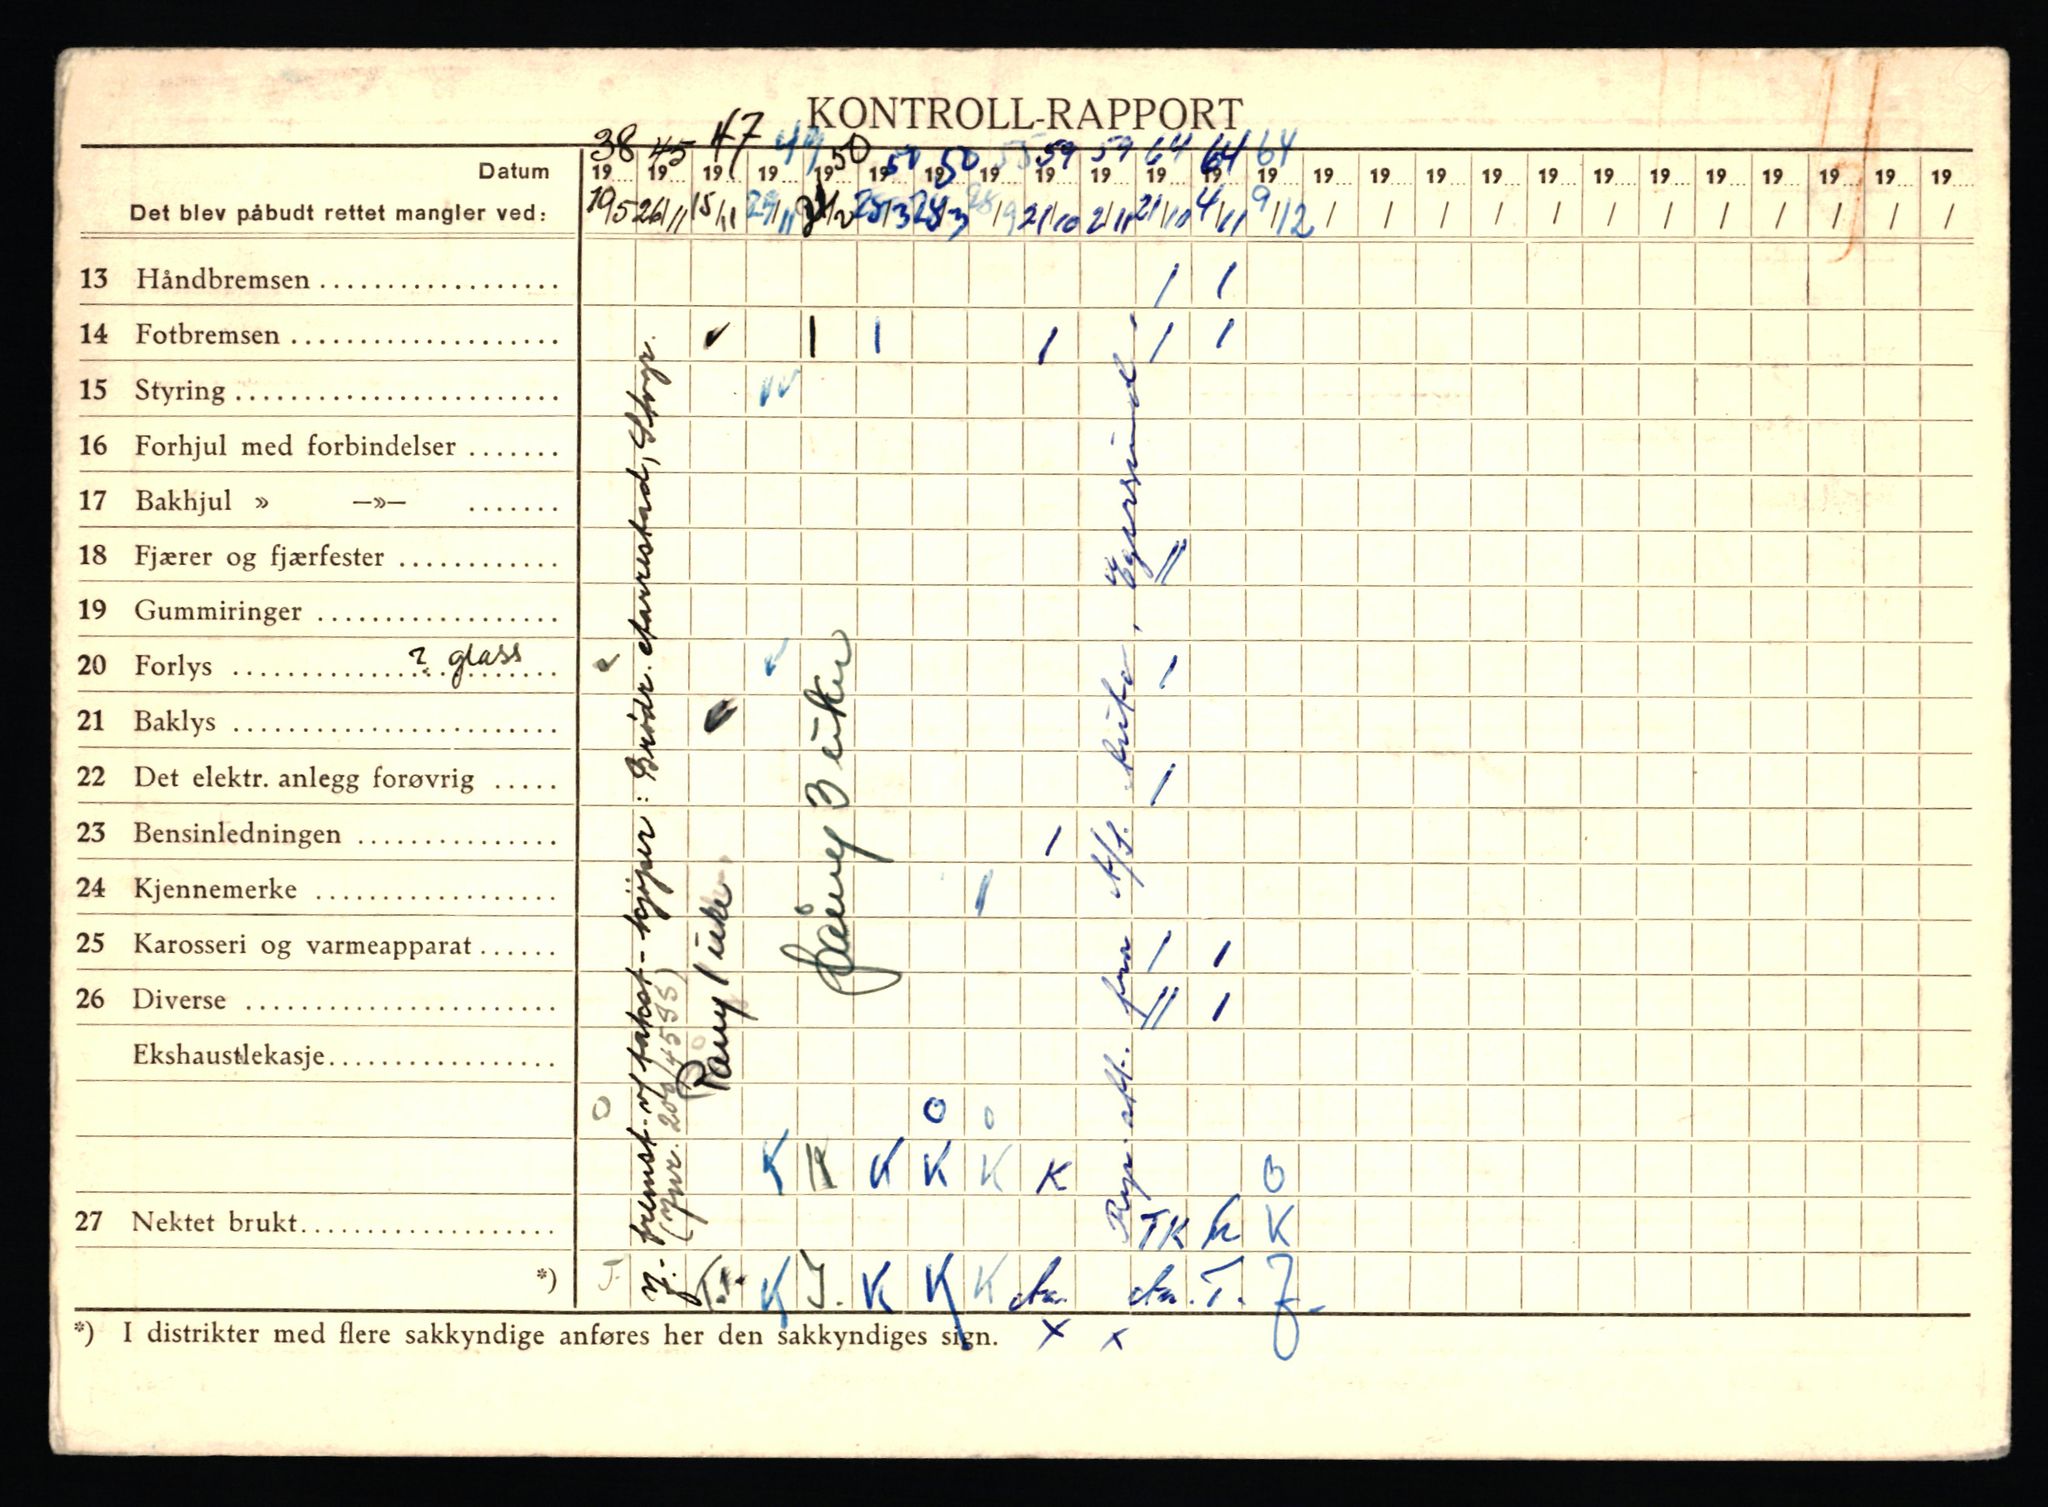 KONTROLL-RAPPORT
38 45 47 49 50 50 50 55 59 59 64 64 64
Datum 19 19 19 19 19 19 19 19 19 19 19 19 19 19 19 19 19 19 19 19 19 19 19 19 19
Det blev påbudt rettet mangler ved: 19/5 26/11 15/11 29/11 /2 25/3 28/3 28/9 21/10 2/11 21/10 4/11 9/12 / / / / / / / / / / / /
13 Håndbremsen / /
14 Fotbremsen ✓ | | / / /
15 Styring ✓✓
16 Forhjul med forbindelser
17 Bakhjul » —»—
18 Fjærer og fjærfester //
19 Gummiringer
20 Forlys ? glass ✓ /
21 Baklys
22 Det elektr. anlegg forøvrig /
23 Bensinledningen /
24 Kjennemerke /
25 Karosseri og varmeapparat / /
26 Diverse // /
Ekshaustlekasje
O O o
K K K K K K O
27 Nektet brukt TK K K
*) T. K T. K K K T.
*) I distrikter med flere sakkyndige anføres her den sakkyndiges sign. x x
fremst. v/ takst - kjøper: Brødr. Aarrestad,
Rep. att. fra A/S Auto, Egersund